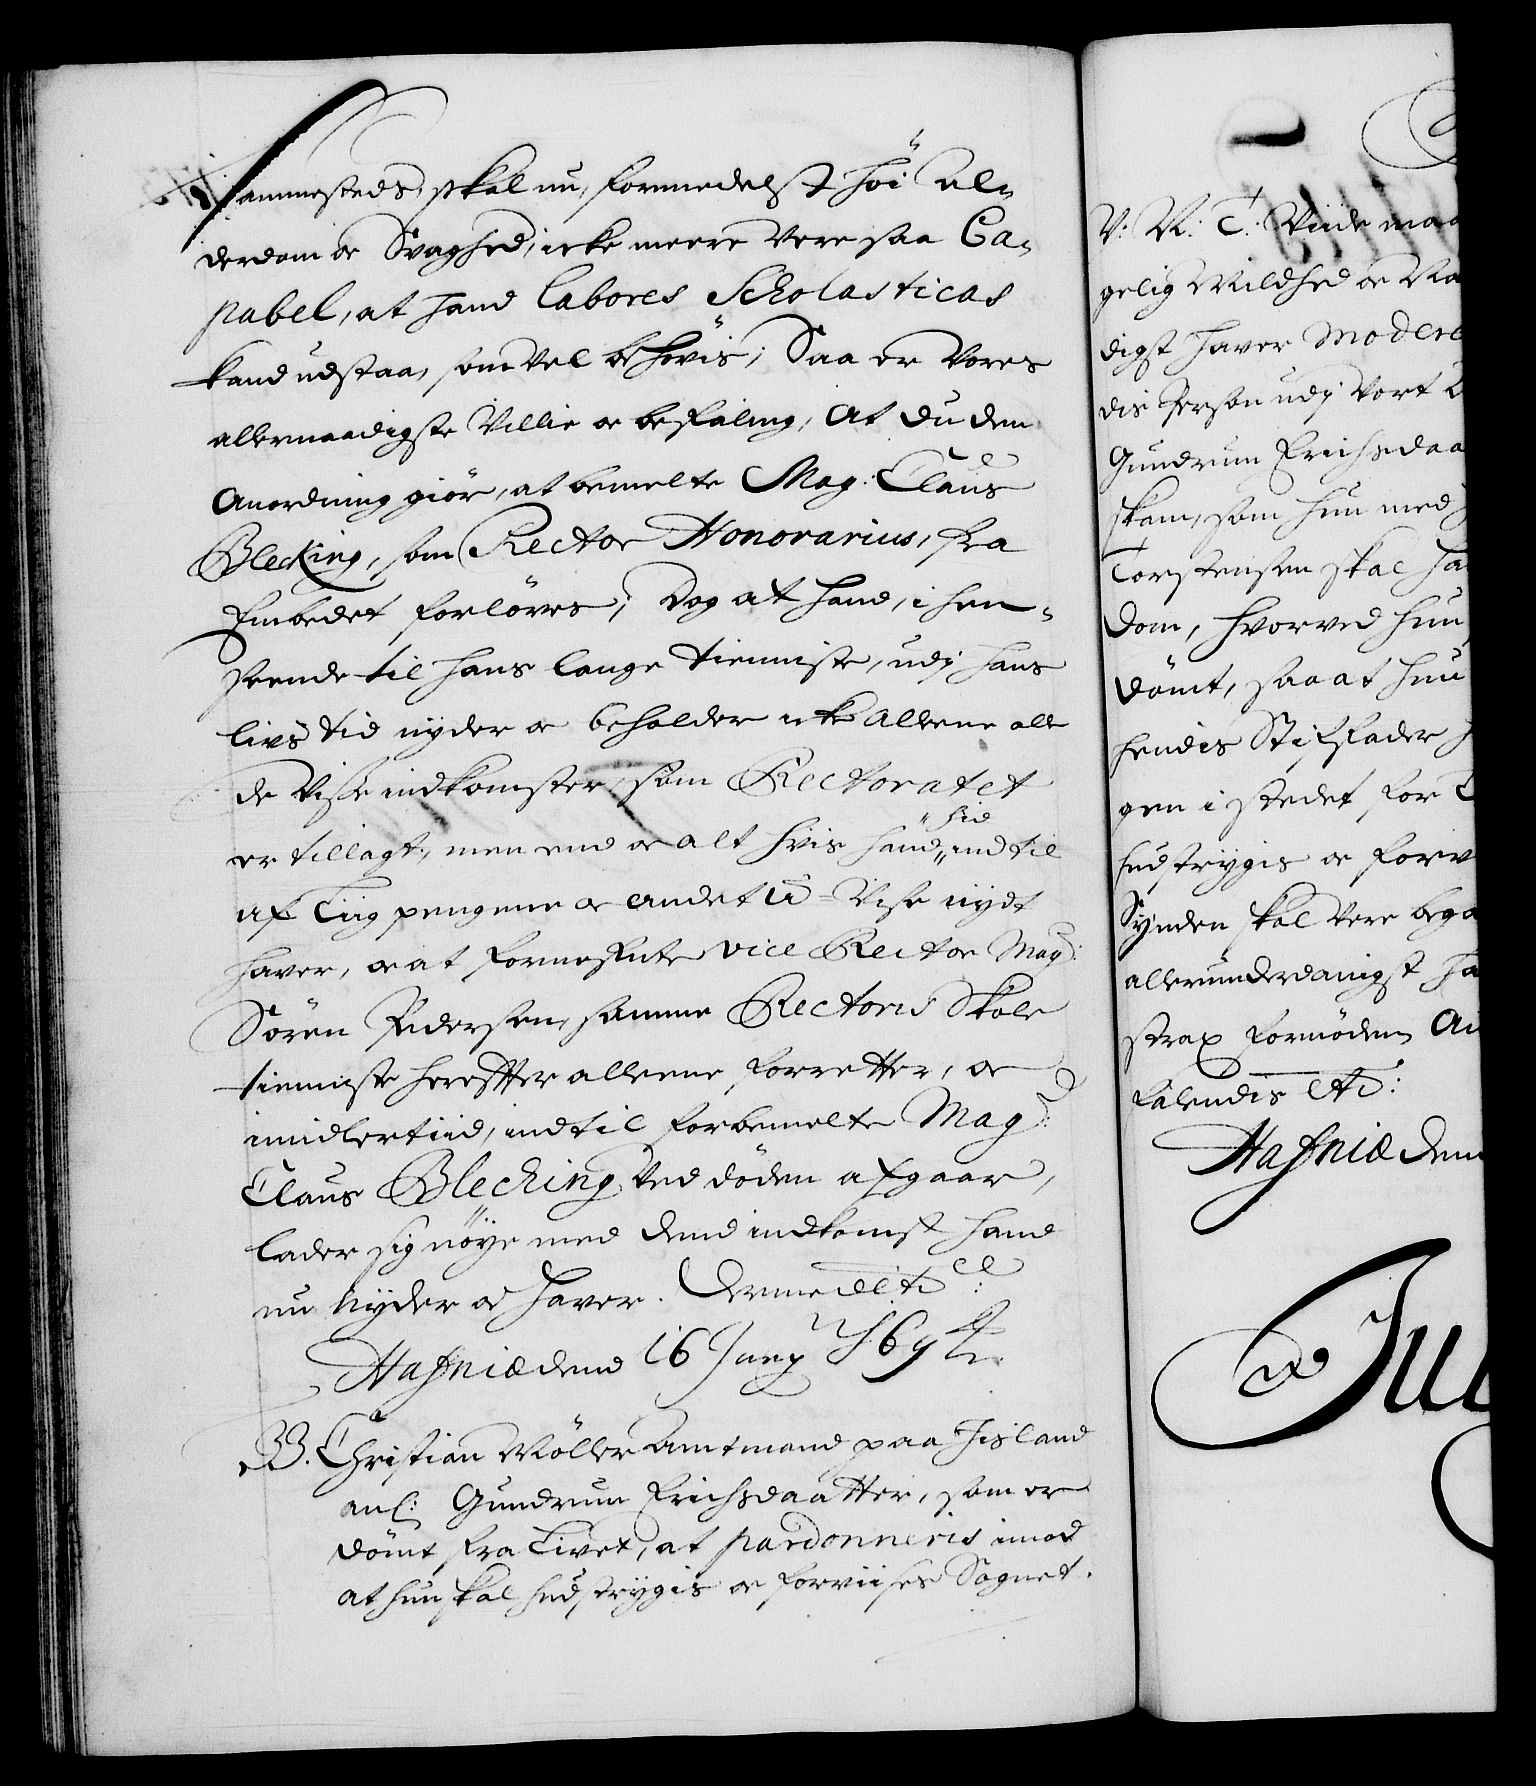 Sammesteds, skal nu, formedelst høi Al-
derdom oc Svaghed, icke meere Vere saa Ca-
pabel, at hand labores Scholasticas
kand udstaa, som vel behøvis; Saa er Vores
allernaadigste Villie oc befaling, At du den
Anordning giør, at bemelte Mag: Claus
Blecking, som Rector Honorarius, fra
Embedet forløves, Dog at hand, i hen-
seende til hans lange tienniste, udj hans
livs tid nyder oc beholder icke alleene alle
de Visse indkomster, som Rectoratet
er tillagt, men end oc alt hvis hand hid ind til
af Liig pengene oc andet U-Vise nydt
haver, oc at formelte Vice Rector Mag:
Søren Pedersen, samme Rectoris Skole
tienniste herefter alleene forretter, oc
imidlertiid, indtil forbemelte Mag:
Claus Bleching ved døden afgaar,
lader sig nøye med dend indkomst hand
nu nyder oc haver. Dermed etc:
Hafniæ dend 16 Janr 1694.
B. Christian Møller Amtmand paa Iisland
anl: Gundrum Erichsdaatter, som er
dømt fra Livet, at pardonneris imod
at hun skal hudstrygis oc forviises Sognet.
V: N: T: Viide maa
gelig Mildhed oc Na
digst haver Modere
dis Person udj vort L
Gundrum Erichsdaa
skam, som hun med
Torstensen skal ha
dom, hvorved hun
dømt, saa at hun
hendis Stiffader
gen i stedet for
hudstrygis oc forv
Synden skal Vere bega
allerunderdanigst ha
strax formoden An
falendis etc:
Hafniæ den
Jul